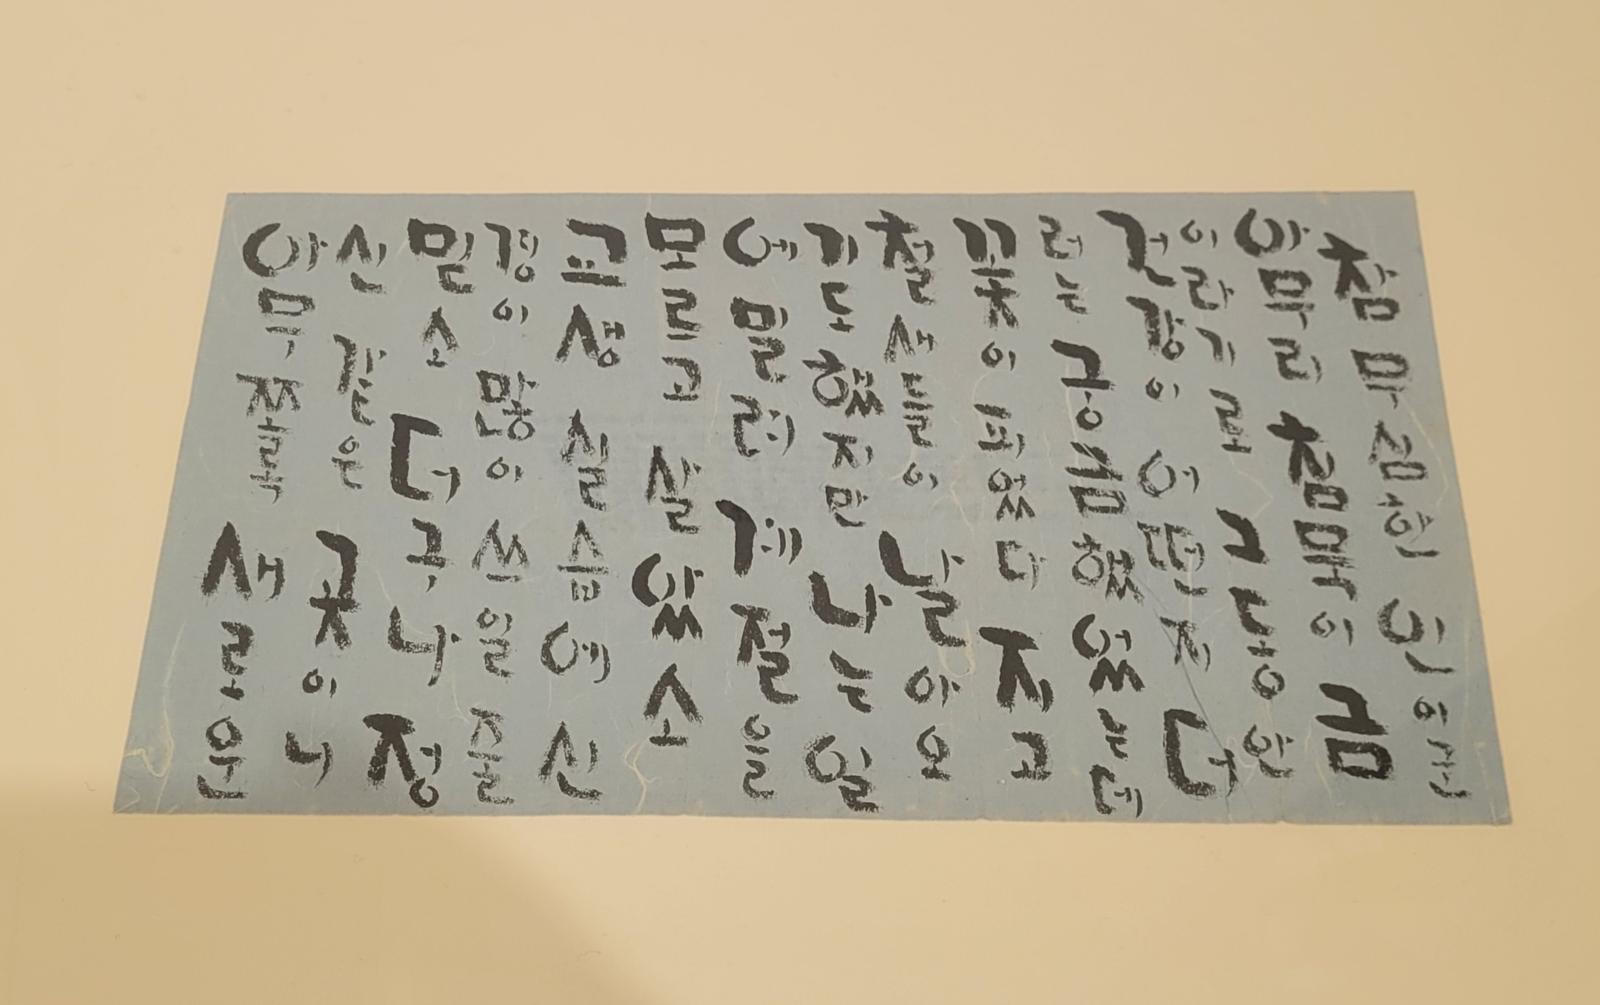 참 무심한 인이군
아무리 침묵이 금
이라기로 그동안
건강이 어떤지 더
러는 궁금했었는데
꽃이 피었다 지고
철새들이 날아오
기도 했지만 나는 일
에 밀려 계절을
모르고 살았소
교생 실습에 신
경이 많이 쓰일 줄
믿소 더구나 정
신 같은 곳이니
아무쪼록 새로운